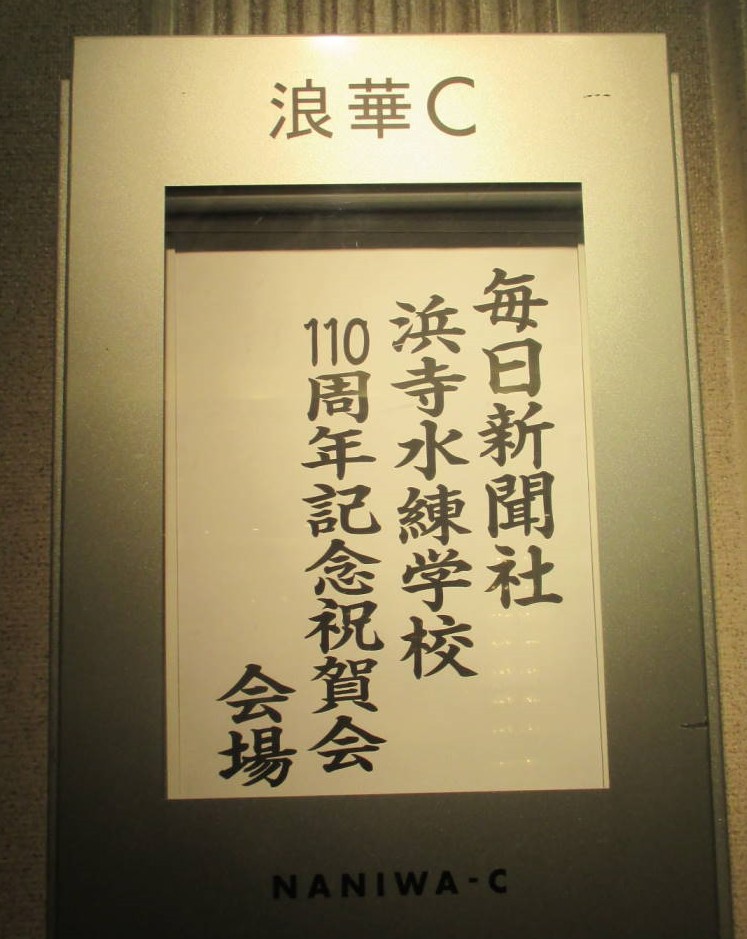 浪華C
毎日新聞社
浜寺水練学校
110周年記念祝賀会
会場
NANIWA-C